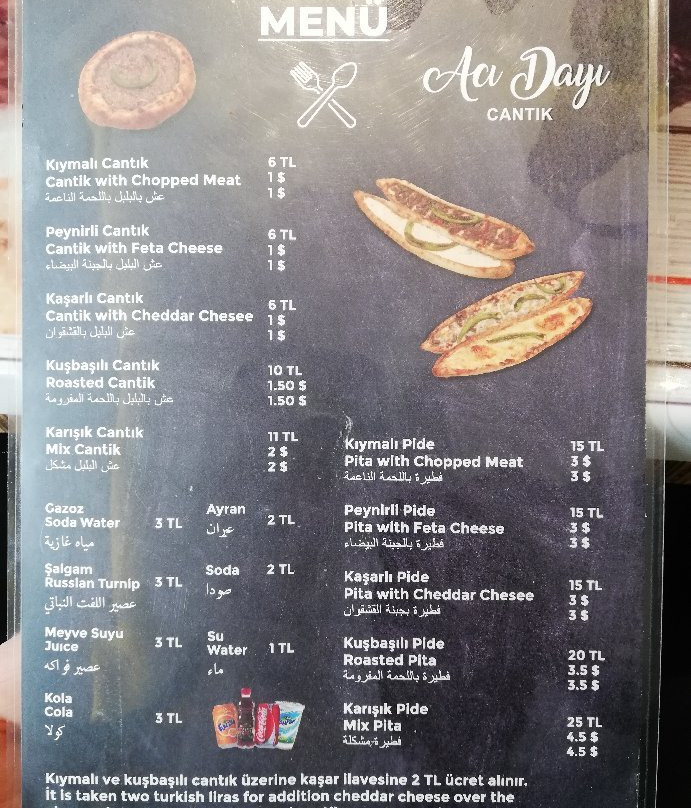 MENÜ
Acı Dayı
CANTIK
Kıymalı Cantık 6 TL
Cantik with Chopped Meat 1 $
عش بالبلبل باللحمة الناعمة 1 $
Peynirli Cantık 6 TL
Cantik with Feta Cheese 1 $
عش البلبل بالجبنة البيضاء 1 $
Kaşarlı Cantık 6 TL
Cantik with Cheddar Chesee 1 $
عش البلبل بالقشقوان 1 $
Kuşbaşılı Cantık 10 TL
Roasted Cantik 1.50 $
عش بالبلبل باللحمة المفرومة 1.50 $
Karışık Cantık 11 TL
Mix Cantik 2 $
عش البلبل مشكل 2 $
Gazoz
Soda Water 3 TL
مياه غازية
Şalgam
Russian Turnip 3 TL
عصير اللفت النباتي
Meyve Suyu
Juice 3 TL
عصير فواكه
Kola
Cola 3 TL
كولا
Ayran 2 TL
عيران
Soda 2 TL
صودا
Su
Water 1 TL
ماء
Kıymalı Pide 15 TL
Pita with Chopped Meat 3 $
فطيرة باللحمة الناعمة 3 $
Peynirli Pide 15 TL
Pita with Feta Cheese 3 $
فطيرة باللجبنة البيضاء 3 $
Kaşarlı Pide 15 TL
Pita with Cheddar Chesee 3 $
فطيرة بجبنة القشقوان 3 $
Kuşbaşılı Pide 20 TL
Roasted Pita 3.5 $
فطيرة باللحمة المفرومة 3.5 $
Karışık Pide 25 TL
Mix Pita 4.5 $
فطيرة مشكلة 4.5 $
Kıymalı ve kuşbaşılı cantık üzerine kaşar ilavesine 2 TL ücret alınır.
İt is taken two turkish liras for addition cheddar cheese over the